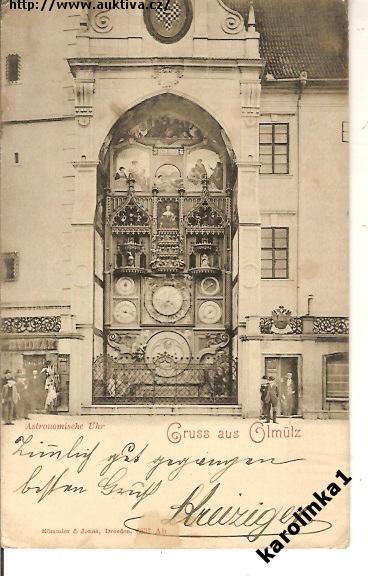 http://www.auktiva.cz/
Astronomische Uhr
Gruss aus Olmütz
Ziemlich gut gegangen
besten Gruß
Kreuziger
Römmler & Jonas, Dresden.
karolinka1